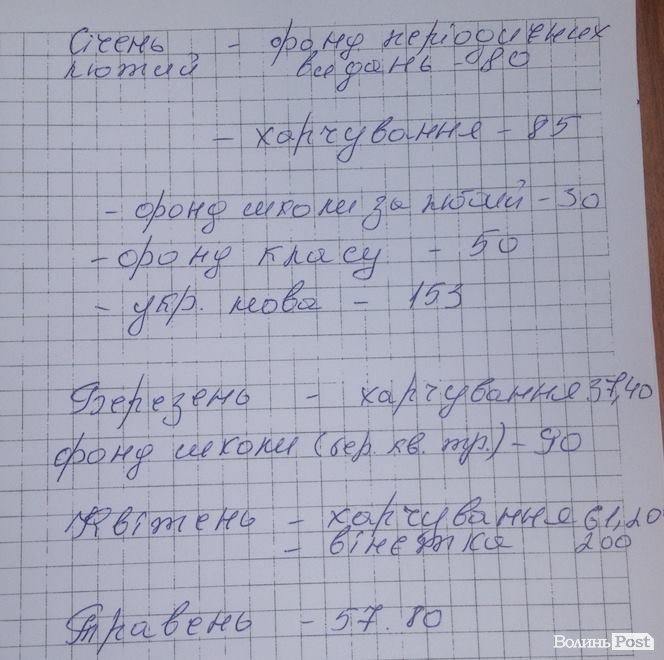 Січень - фонд періодичних
лютий видань - 80
- харчування - 85
- фонд школи за лютий - 30
- фонд класу - 50
- укр. мова - 153
Березень - харчування 37,40
фонд школи (бер. кв. тр.) - 90
Квітень - харчування 61,20
- вінетка 200
Травень - 57.80
ВолиньPost